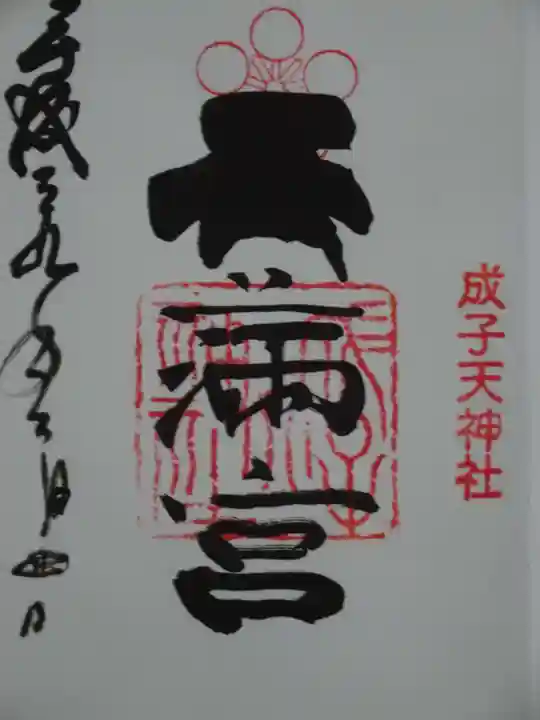 成子天神社
天満宮
平成二九年二月四日